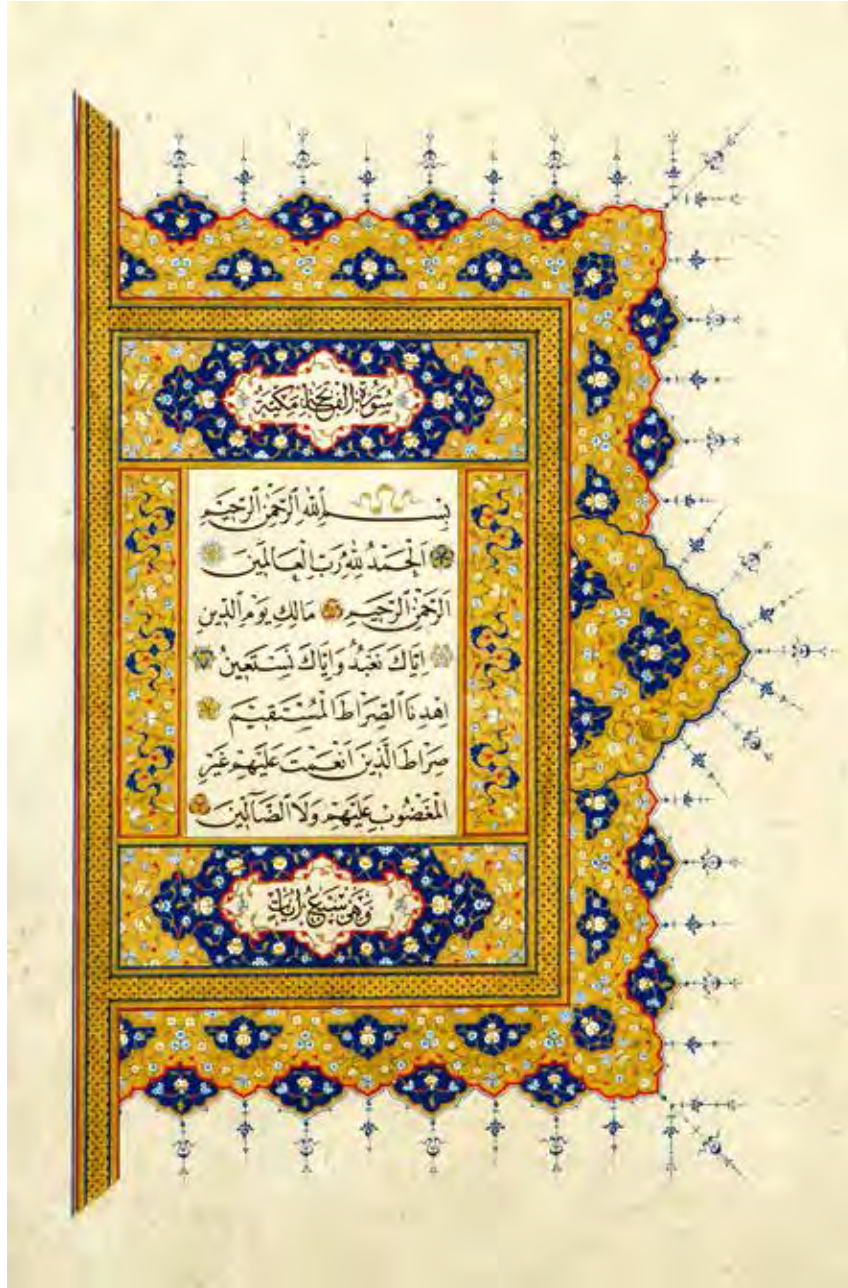 سُورَةُ الْفَاتِحَةِ مَكِّيَّةٌ
بِسْمِ اللّٰهِ الرَّحْمٰنِ الرَّحِيمِ
اَلْحَمْدُ لِلّٰهِ رَبِّ الْعَالَمِينَ
اَلرَّحْمٰنِ الرَّحِيمِ مَالِكِ يَوْمِ الدِّينِ
اِيَّاكَ نَعْبُدُ وَاِيَّاكَ نَسْتَعِينُ
اِهْدِنَا الصِّرَاطَ الْمُسْتَقِيمَ
صِرَاطَ الَّذِينَ اَنْعَمْتَ عَلَيْهِمْ غَيْرِ
الْمَغْضُوبِ عَلَيْهِمْ وَلَا الضَّالِّينَ
وَهِيَ سَبْعُ اٰيَاتٍ